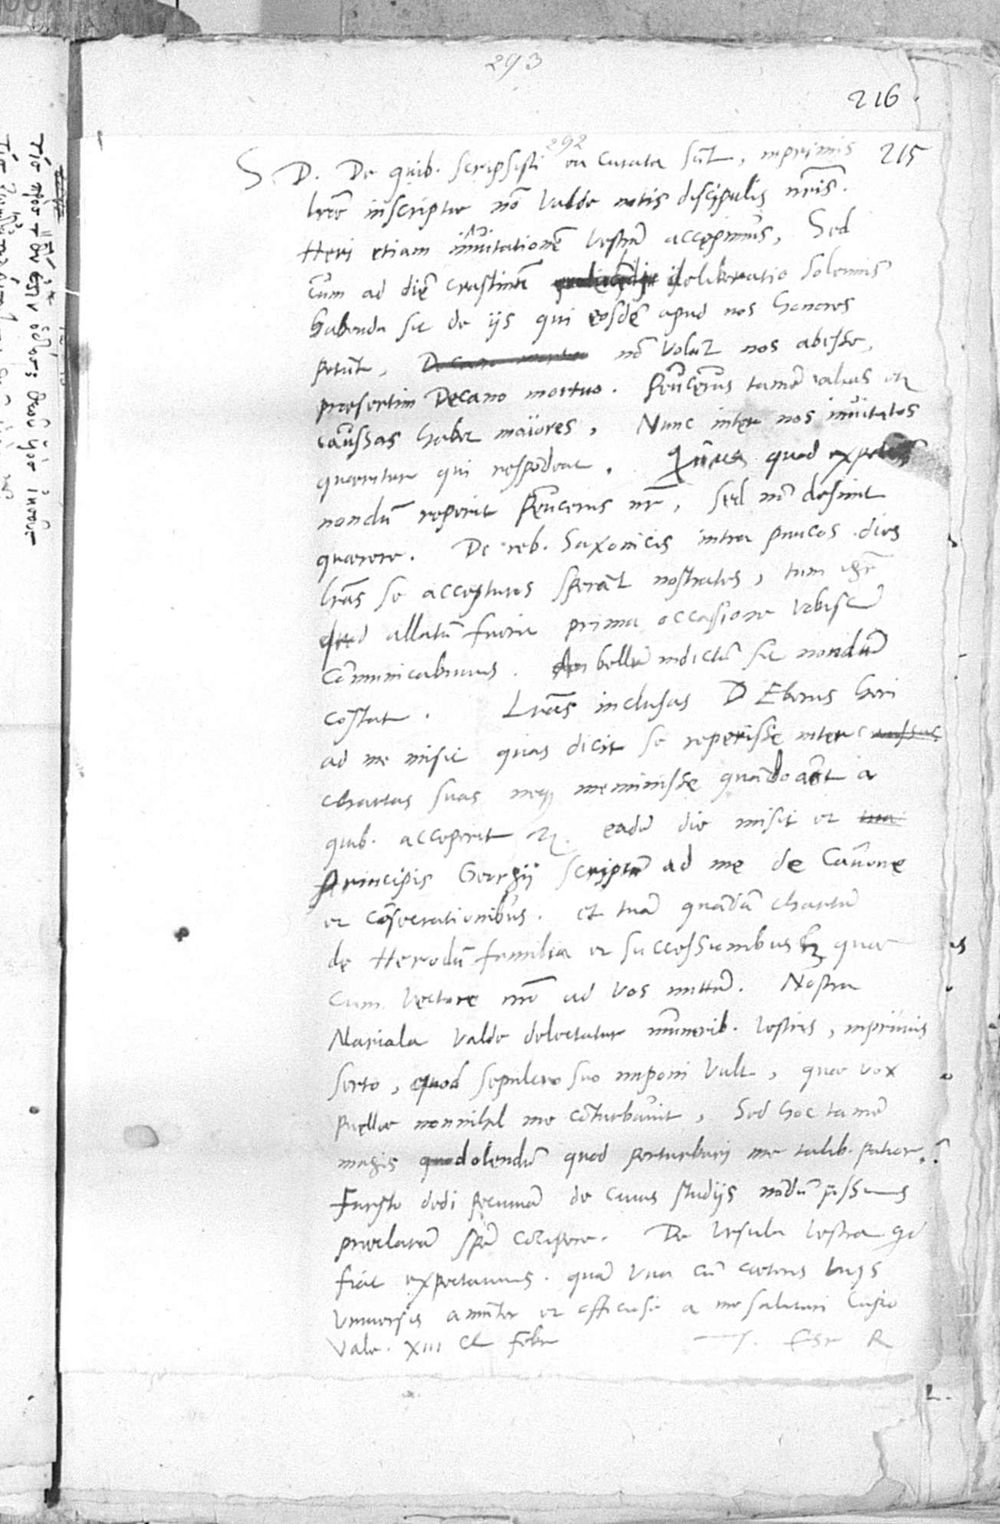 293
216.
292
S. D. De quib. scripsisti ea curata sūt, inprimis 215
lr̄ae inscriptae nō valde notis discipulis nr̄is.
Heri etiam invitationē vestrā accepimus, Sed
cum ad diē crastinū deliberatio solennis
habenda sit de iis qui eosdē apud nos honores
petūt, nō volūt nos abesse,
praesertim Decano mortuo. Peucerus tamē alias et
caussas habet maiores, Nunc inter nos invitatos
quaeritur qui respōdeat. quod expetis
nondū reperit Peucerus nr̄, sed nō desinit
quaerere. De reb. Saxonicis intra paucos dies
lr̄as se accepturos sperāt nostrates, tum
quod allatū fuerit prima occasione vobiscū
cōmunicabimus. An bellū indictū sit nondū
cōstat. Lr̄as inclusas D Eberus heri
ad me misit quas dicit se reperisse inter
chartas suas neq; meminisse quādo aūt a
quib. acceperit etc. eadē die misit et
Principis Georgii scriptū ad me de Canone
et cōsecrationibus. et tuā quādā chartā
de Herodū familia et successionibus quae
cum vectore nr̄o ad vos mittā. Nostra
Mariala valde delectatur munerib. vestris, inprimis
serto, quod sepulcro suo imponi vult, quae vox
puellae nonnihil me cōturbavit, Sed hoc tamē
magis dolendū quod perturbari me talib. patior.
dedi pecuniā de cuius studiis nōdū possumus
praeclarā spē cōcipere. De Ursula vestra qd
fiat expectamus. quā una cū caeteris
universis amāter et officiose a me salutari cupio
Vale. XIII Cl Febr